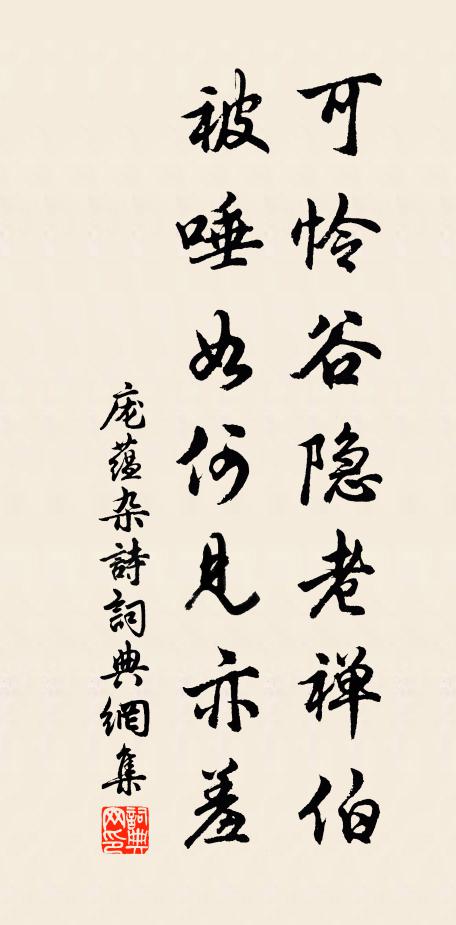 可怜谷隐老禅伯
被唾如何见亦羞
庞蕴杂詩詞典網集
詞典网印